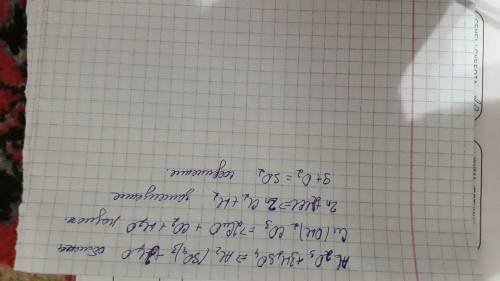 Al2O3 + 3H2SO4 => Al2(SO4)3 + 3H2O обмен
Cu(OH)2CO3 => 2CuO + CO2 + H2O разлож
Zn + 2HCl => ZnCl2 + H2 замещение
S + O2 = SO2 соединение.